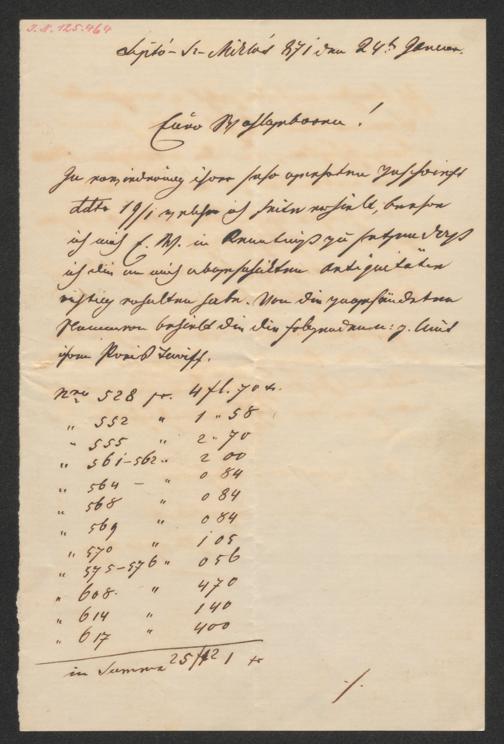 J.N. 125.464
Liptó-Sz-Miklós 871 den 24t Januar.
Euer Wohlgeboren!
Zu erwiederung ihrer sehr geehrten Zuschrift
ddto 19/1 welche ich heute erhielt, beehre
ich mich E. W. in Kenntniß zu setzen daß
ich die an mich abgeschickten Antiquitäten
richtig erhalten habe. Von den zugesendeten
Nummern behielt ich die folgenden:
ihrem Preis Tariff.
Nro 528 pr. 4 fl. 70 x.
" 552 " 1 " 58
" 555 " 2 " 70
" 561-562 " 2 00
" 564 - " 0 84
" 568 " 0 84
" 569 " 0 84
" 570 " 1 05
" 575-576 " 0 56
" 608 " 4 70
" 614 " 1 40
" 617 " 4 00
in Summa 25 f 21 x
./.